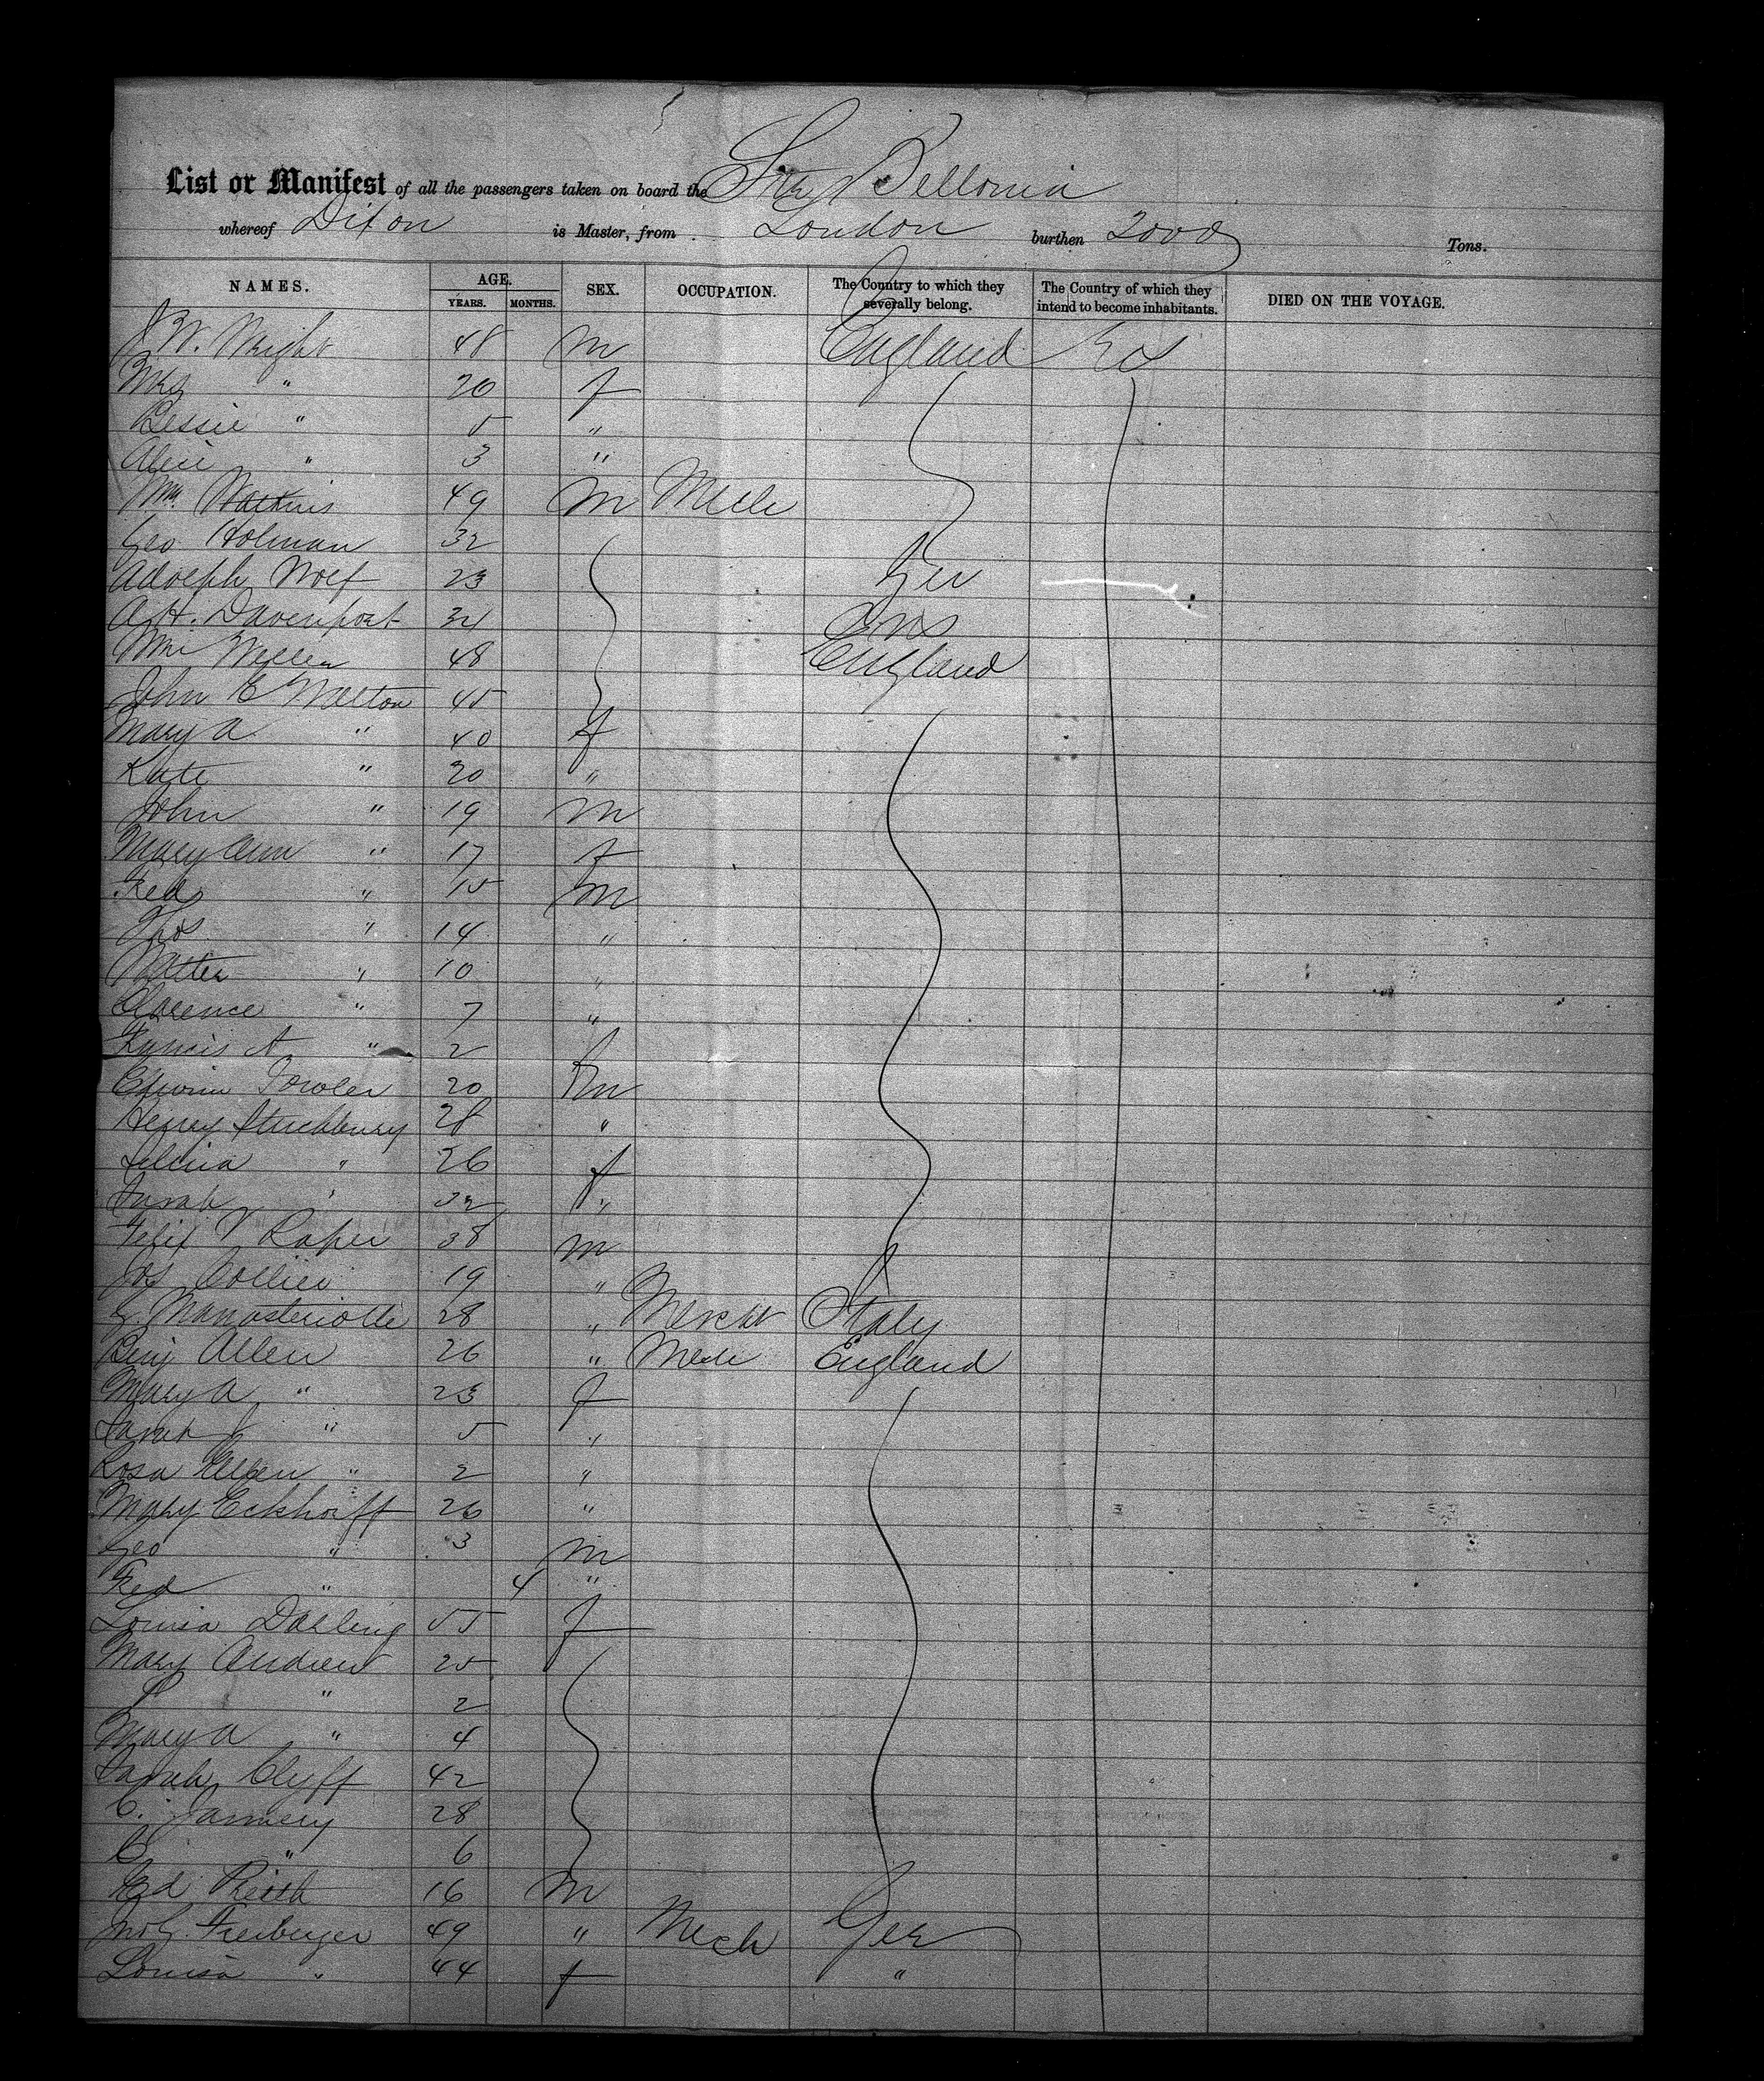 List or Manifest of all the passengers taken on board the Str Bellonia
whereof Dixon is Master, from London burthen 2000 Tons.
NAMES. AGE. YEARS. MONTHS. SEX. OCCUPATION. The Country to which they severally belong. The Country of which they intend to become inhabitants. DIED ON THE VOYAGE.
J W. Wright 48 m England
Mrs " 20 f
Bessie " 5 "
Alice " 3 "
Wm. Watkins 49 m Mech
Geo Holman 32
Adolph Wolf 23 Ger
A. H. Davenport 34
Wm Weller 48 England
John E Walton 45
Mary A " 40 f
Kate " 20 "
John " 19 m
Mary Ann " 17 f
Fred " 15 m
Thos " 14 "
Walter " 10 "
Clarence " 7 "
Francis A " 2
Edwin Fowler 20 m
Henry Stuchbury 28 "
Selina " 26 f
Sarah " 32 "
Felix V Raper 38 m
Jos Collier 19 "
28 " Mercht Italy
Benj Allen 26 " Mech England
Mary A " 23 f
Sarah J " 5 "
Rosa Ellen " 2 "
Mary Eckhoff 26 "
Geo " 3 m
Fred " 4 "
Louisa Darling 55 f
Mary Andrew 25
" 2
Mary A " 4
Sarah Clyff 42
C. Jannery 28
C " 6
Ed Reith 16 m
Jno G. Freiberger 49 " Mech Ger
Louisa " 44 f "